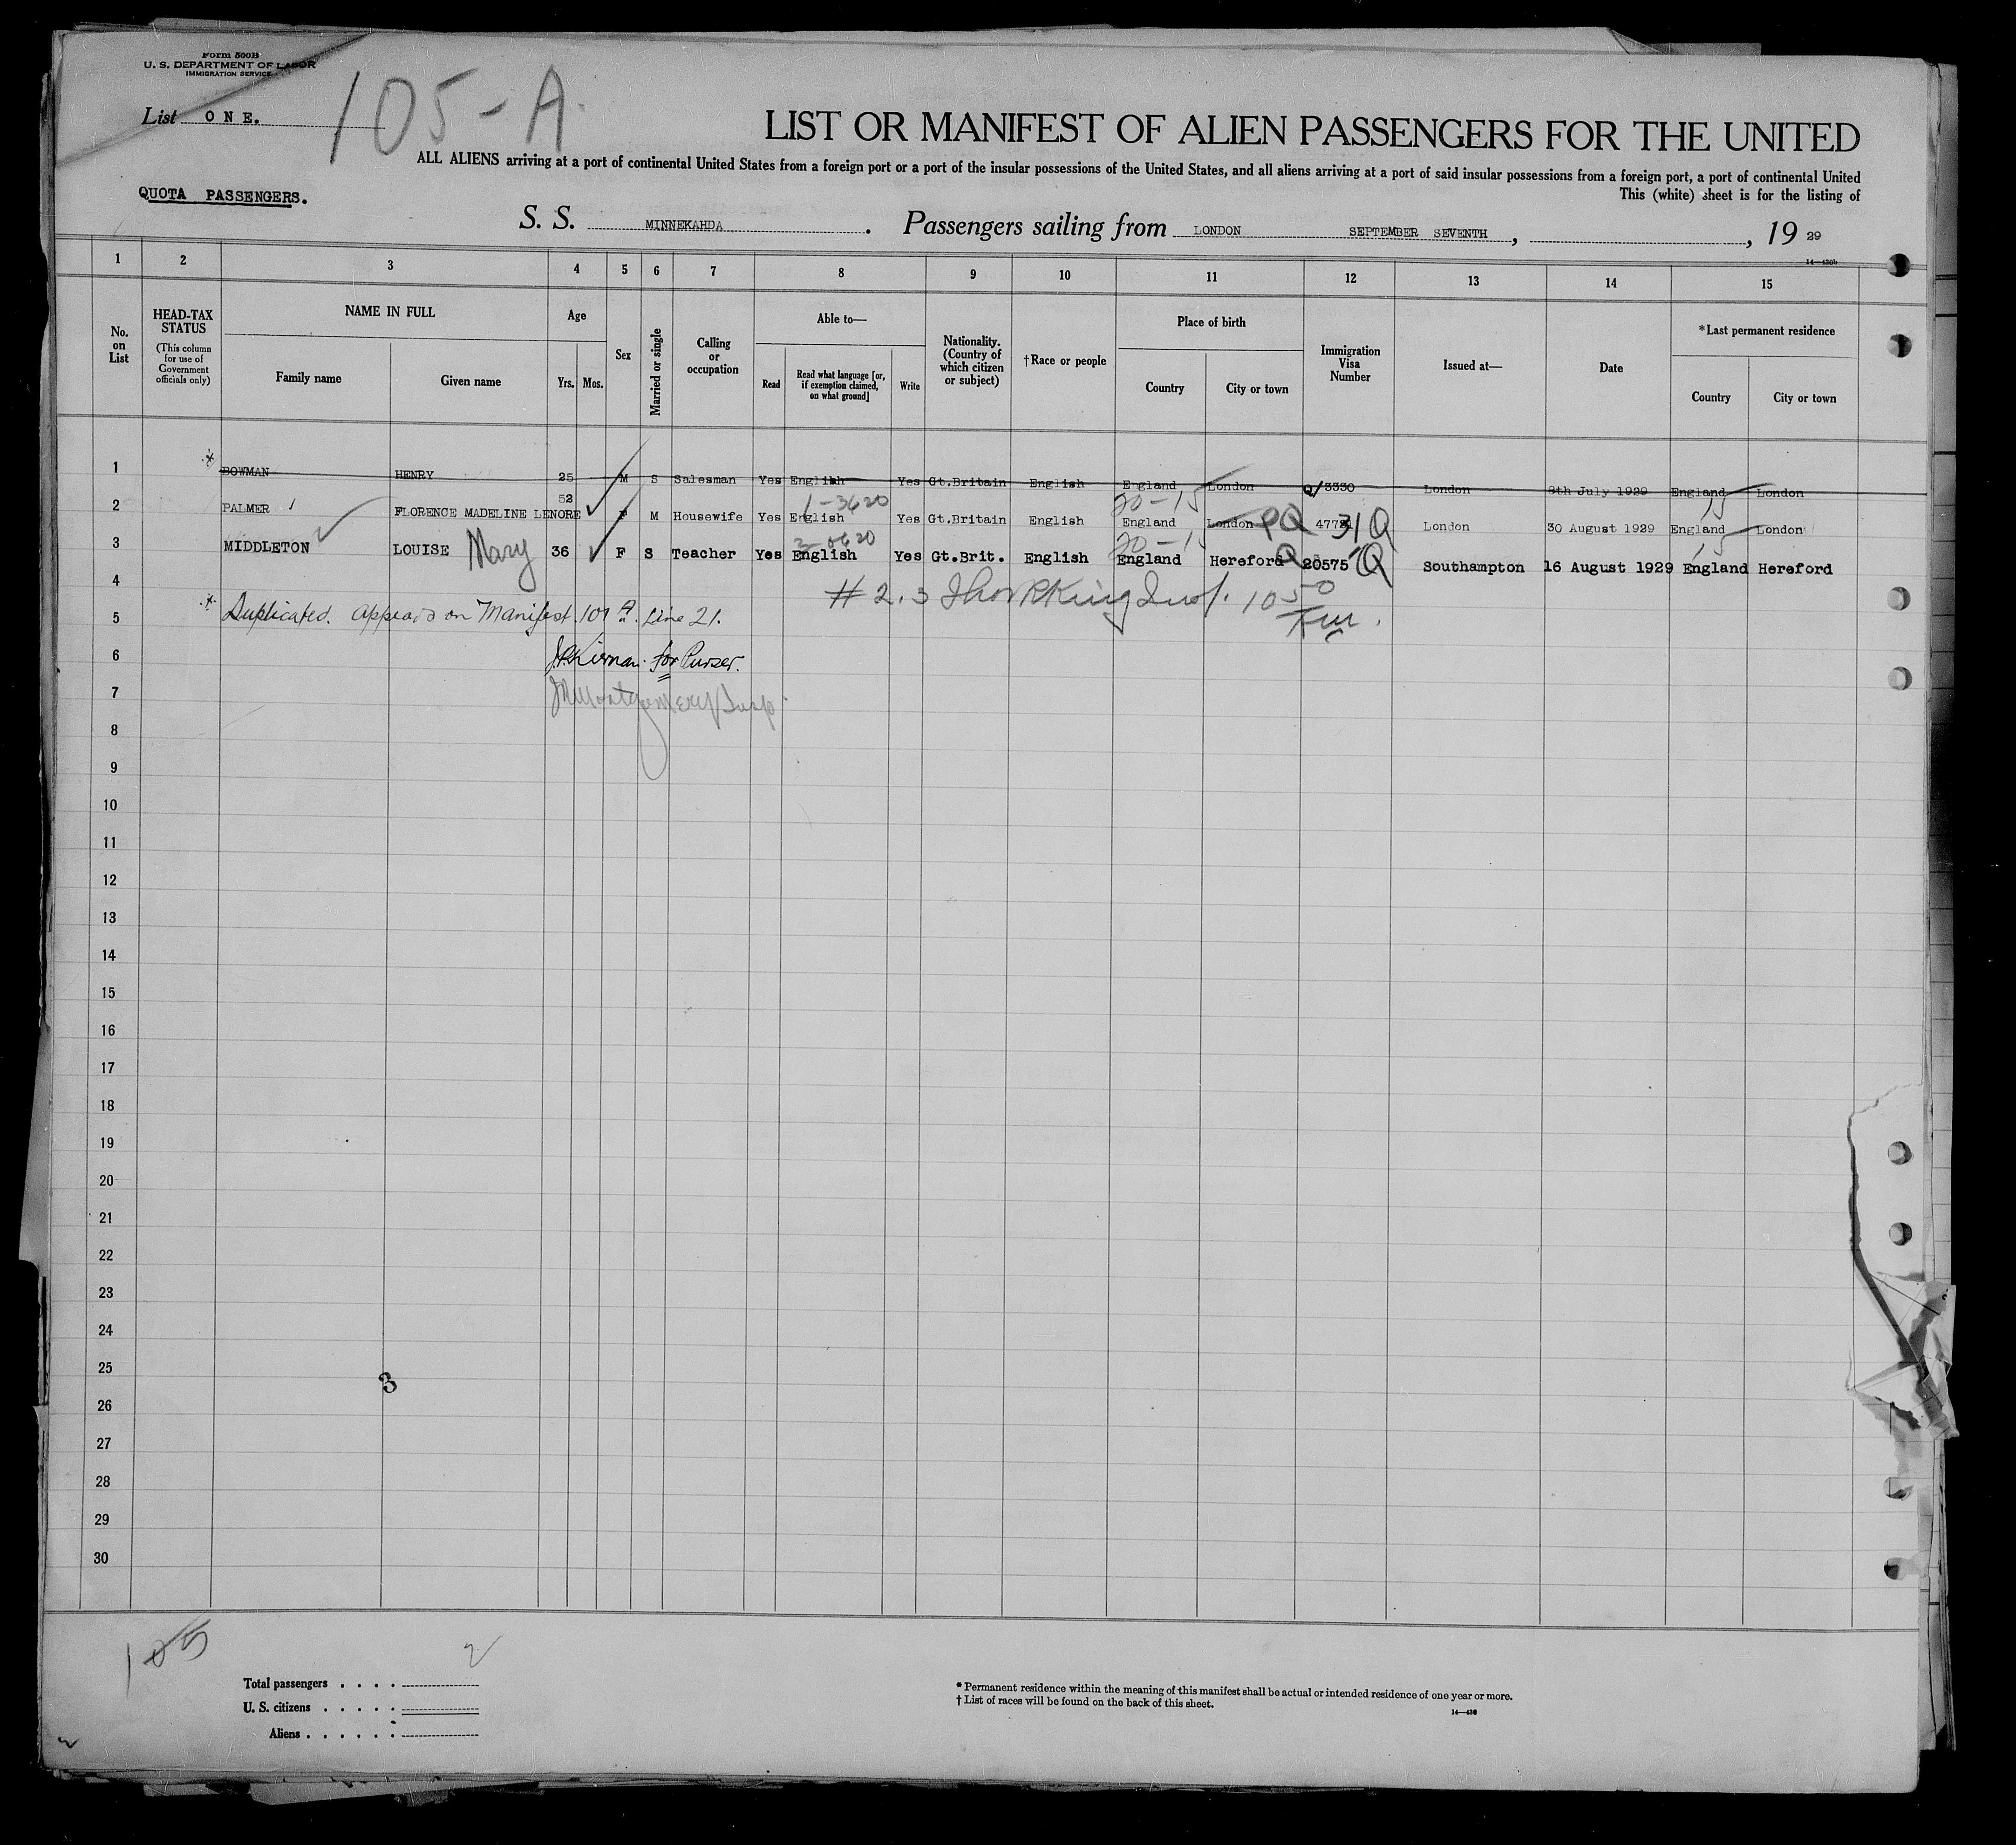 Form 500B
U. S. DEPARTMENT OF LABOR
IMMIGRATION SERVICE
List ONE.
105-A.
LIST OR MANIFEST OF ALIEN PASSENGERS FOR THE UNITED
ALL ALIENS arriving at a port of continental United States from a foreign port or a port of the insular possessions of the United States, and all aliens arriving at a port of said insular possessions from a foreign port, a port of continental United
QUOTA PASSENGERS.
This (white) sheet is for the listing of
S. S. MINNEKAHDA. Passengers sailing from LONDON SEPTEMBER SEVENTH, , 19 29
14—430b
1 2 3 4 5 6 7 8 9 10 11 12 13 14 15
No. on List
HEAD-TAX STATUS (This column for use of Government officials only)
NAME IN FULL Family name Given name
Age Yrs. Mos.
Sex
Married or single
Calling or occupation
Able to— Read Read what language [or, if exemption claimed, on what ground] Write
Nationality. (Country of which citizen or subject)
†Race or people
Place of birth Country City or town
Immigration Visa Number
Issued at—
Date
*Last permanent residence Country City or town
1 * BOWMAN HENRY 25 M S Salesman Yes English Yes Gt.Britain English England London Q/3330 London 8th July 1929 England London
1-3620 20-15 15
2 PALMER FLORENCE MADELINE LENORE 52 F M Housewife Yes English Yes Gt.Britain English England London PQ London 30 August 1929 England London
20-15 15
3 MIDDLETON LOUISE Mary 36 F S Teacher Yes English Yes Gt.Brit. English England Hereford Q 20575 Q Southampton 16 August 1929 England Hereford
4
# 2.3
5 * Duplicated. Appears on Manifest 107 A. Line 21.
6 for Purser.
7 Montgomery Insp
8
9
10
11
12
13
14
15
16
17
18
19
20
21
22
23
24
25
3
26
27
28
29
30
105
2
Total passengers . . . .
U. S. citizens . . . . .
Aliens . . . . . .
* Permanent residence within the meaning of this manifest shall be actual or intended residence of one year or more.
† List of races will be found on the back of this sheet.
14—430
2